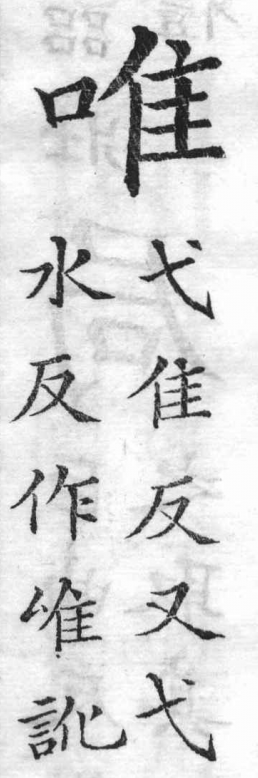 唯
弋隹反又弋
水反作嗺訛